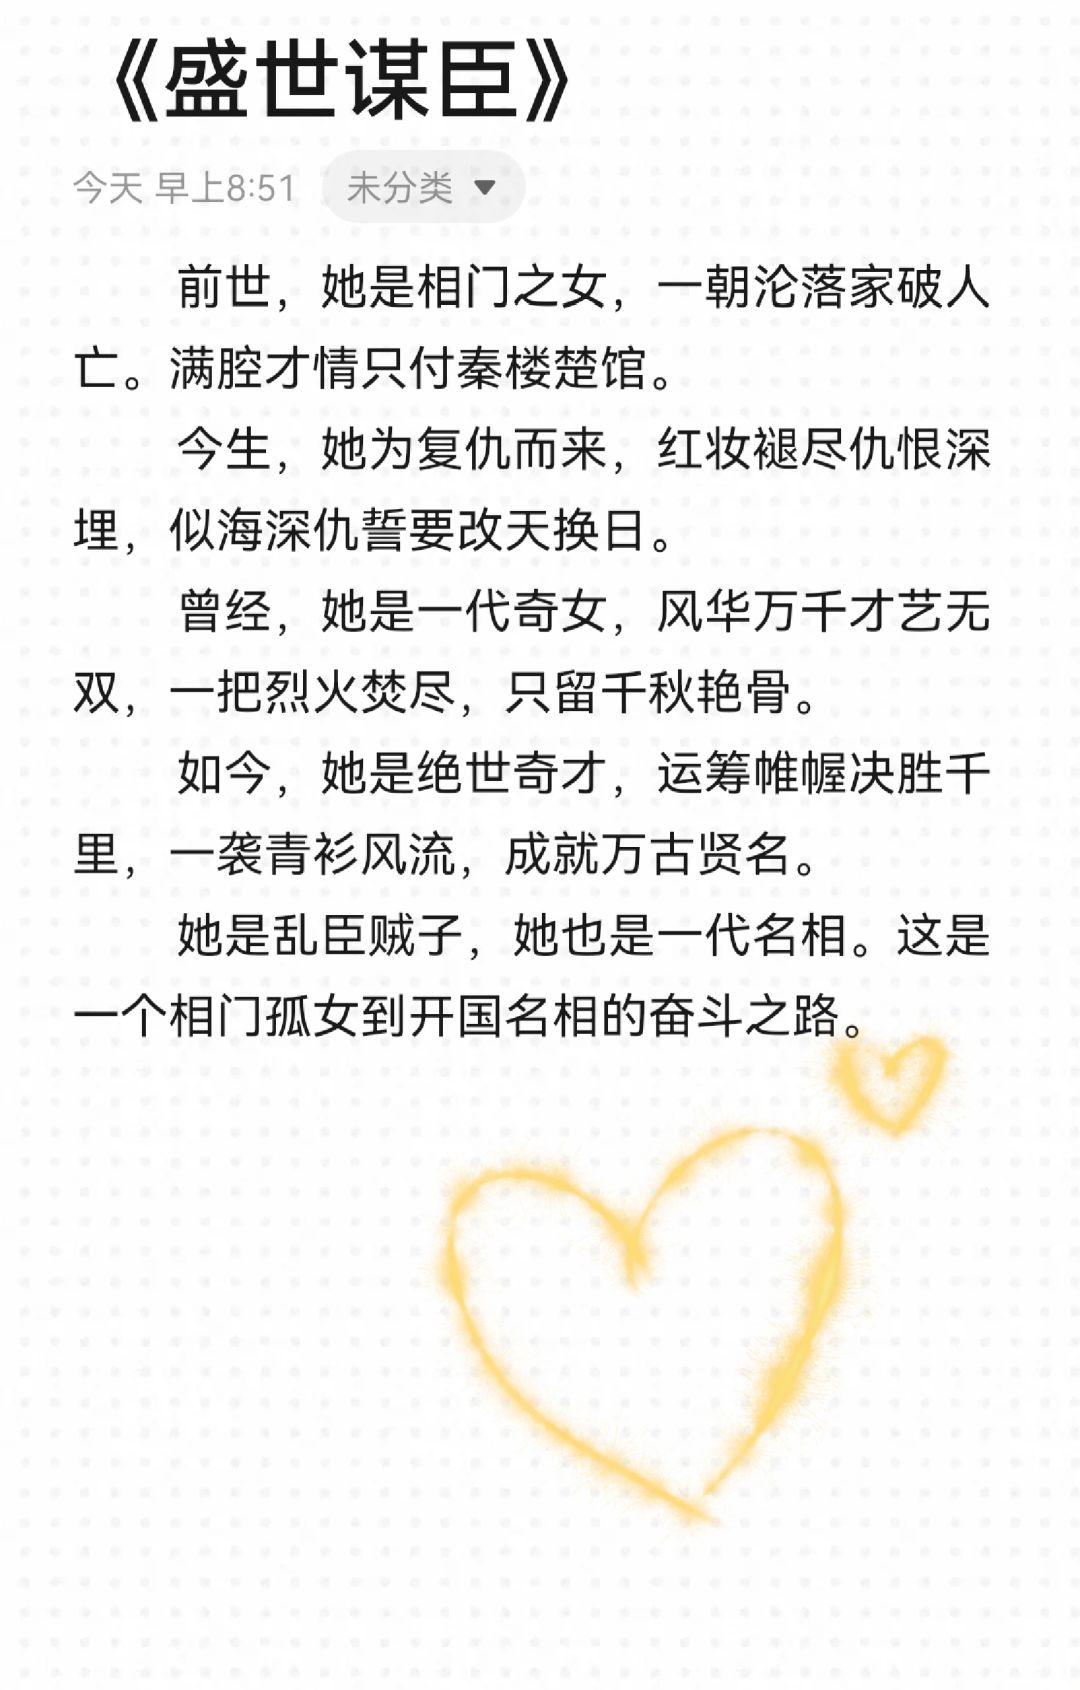 《盛世谋臣》
今天 早上8:51 未分类
前世，她是相门之女，一朝沦落家破人
亡。满腔才情只付秦楼楚馆。
今生，她为复仇而来，红妆褪尽仇恨深
埋，似海深仇誓要改天换日。
曾经，她是一代奇女，风华万千才艺无
双，一把烈火焚尽，只留千秋艳骨。
如今，她是绝世奇才，运筹帷幄决胜千
里，一袭青衫风流，成就万古贤名。
她是乱臣贼子，她也是一代名相。这是
一个相门孤女到开国名相的奋斗之路。